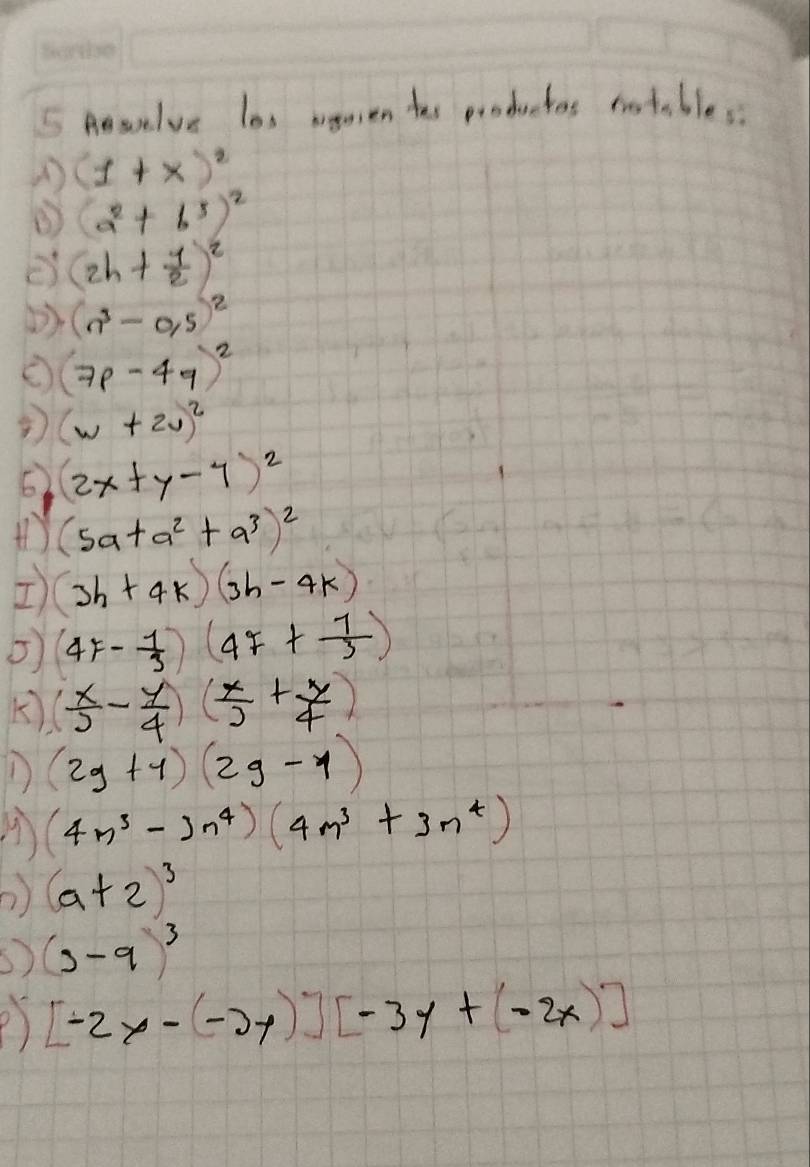 5 Resuelve los siguientes productos notables:
A) (1 + x)²
B) (a² + b³)²
C) (2h + 1/2)²
D) (n³ - 0,5)²
E) (7p - 4q)²
F) (w + 2v)²
G) (2x + y - 1)²
H) (5a + a² + a³)²
I) (3h + 4k)(3h - 4k)
J) (4r - 1/3)(4r + 1/3)
K) (x/3 - y/4)(x/3 + y/4)
l) (2g + 1)(2g - 1)
M) (4m³ - 3n⁴)(4m³ + 3n⁴)
n) (a + 2)³
(3 - q)³
P) [-2x - (-3y)][-3y + (-2x)]